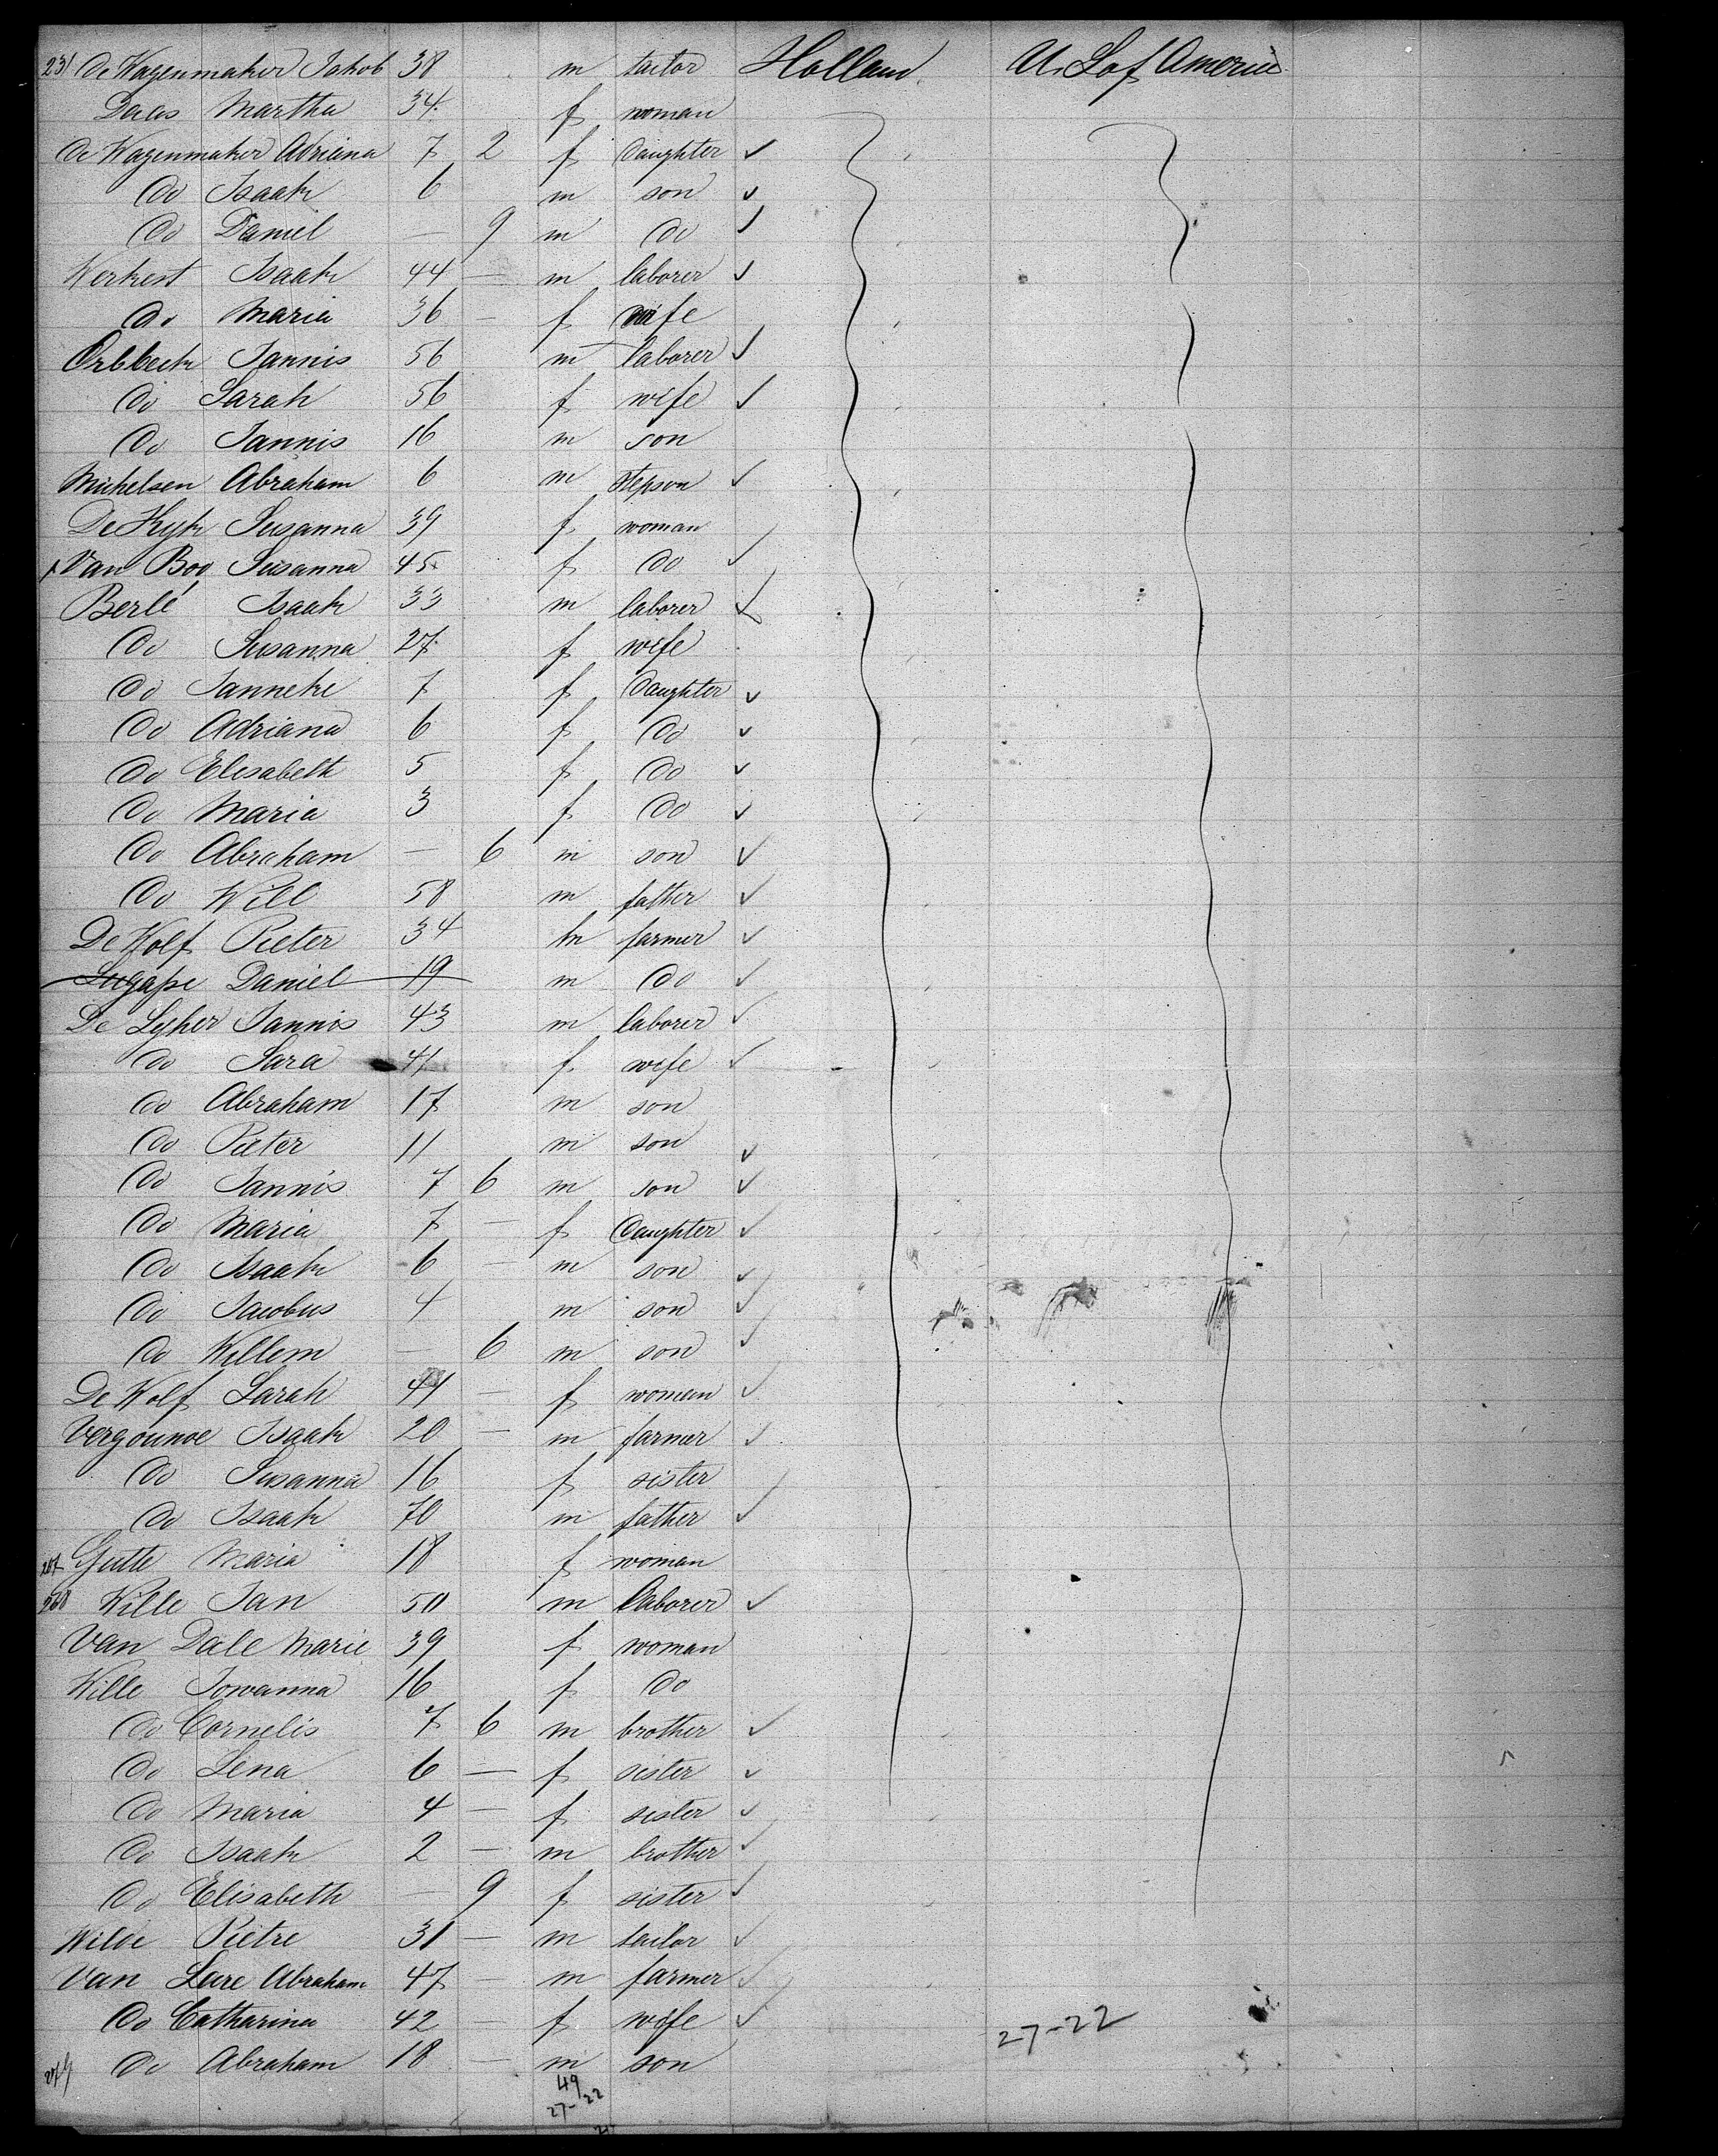 231 de Wagenmaker Jakob 38 m tailor Holland U. S. of America
Daas Martha 34 f woman
de Wagenmaker Adriana 7 2 f daughter ✓
do Isaak 6 m son ✓
do Daniel — 9 m do ✓
Werkest Isaak 44 — m laborer ✓
do Maria 36 — f wife
Orbbeek Jannis 56 m laborer ✓
do Sarah 56 f wife ✓
do Jannis 16 m son
Michelsen Abraham 6 m stepson ✓
De Hyk Susanna 39 f woman
Van Boo Susanna 45 f do ✓
Berlé Isaak 33 m laborer ✓
do Susanna 27 f wife
do Janneke 7 f daughter ✓
do Adriana 6 f do ✓
do Elisabeth 5 f do ✓
do Maria 3 f do ✓
do Abraham — 6 m son ✓
do Will 58 m father ✓
De Wolf Pieter 34 m farmer ✓
Daniel 19 m do ✓
De Lyher Jannis 43 m laborer ✓
do Sara 41 f wife ✓
do Abraham 17 m son
do Pieter 11 m son ✓
do Jannis 7 6 m son ✓
do Maria 7 — f daughter ✓
do Isaak 6 — m son ✓
do Jacobus 4 m son ✓
do Willem — 6 m son ✓
De Wolf Sarah 41 — f woman ✓
Vergounoe Isaak 20 — m farmer ✓
do Susanna 16 f sister
do Isaak 70 m father ✓
267 Gutte Maria 18 f woman
268 Wille Jan 50 m laborer ✓
Van Dale Marie 39 f woman
Wille Jowanna 16 f do
do Cornelis 7 6 m brother ✓
do Lena 6 — f sister ✓
do Maria 4 — f sister ✓
do Isaak 2 — m brother ✓
do Elisabeth — 9 f sister ✓
Wilde Pietre 31 — m tailor ✓
Van Lare Abraham 47 — m farmer ✓
do Catharina 42 — f wife ✓ 27-22
279 do Abraham 18 — m son
49
27-22